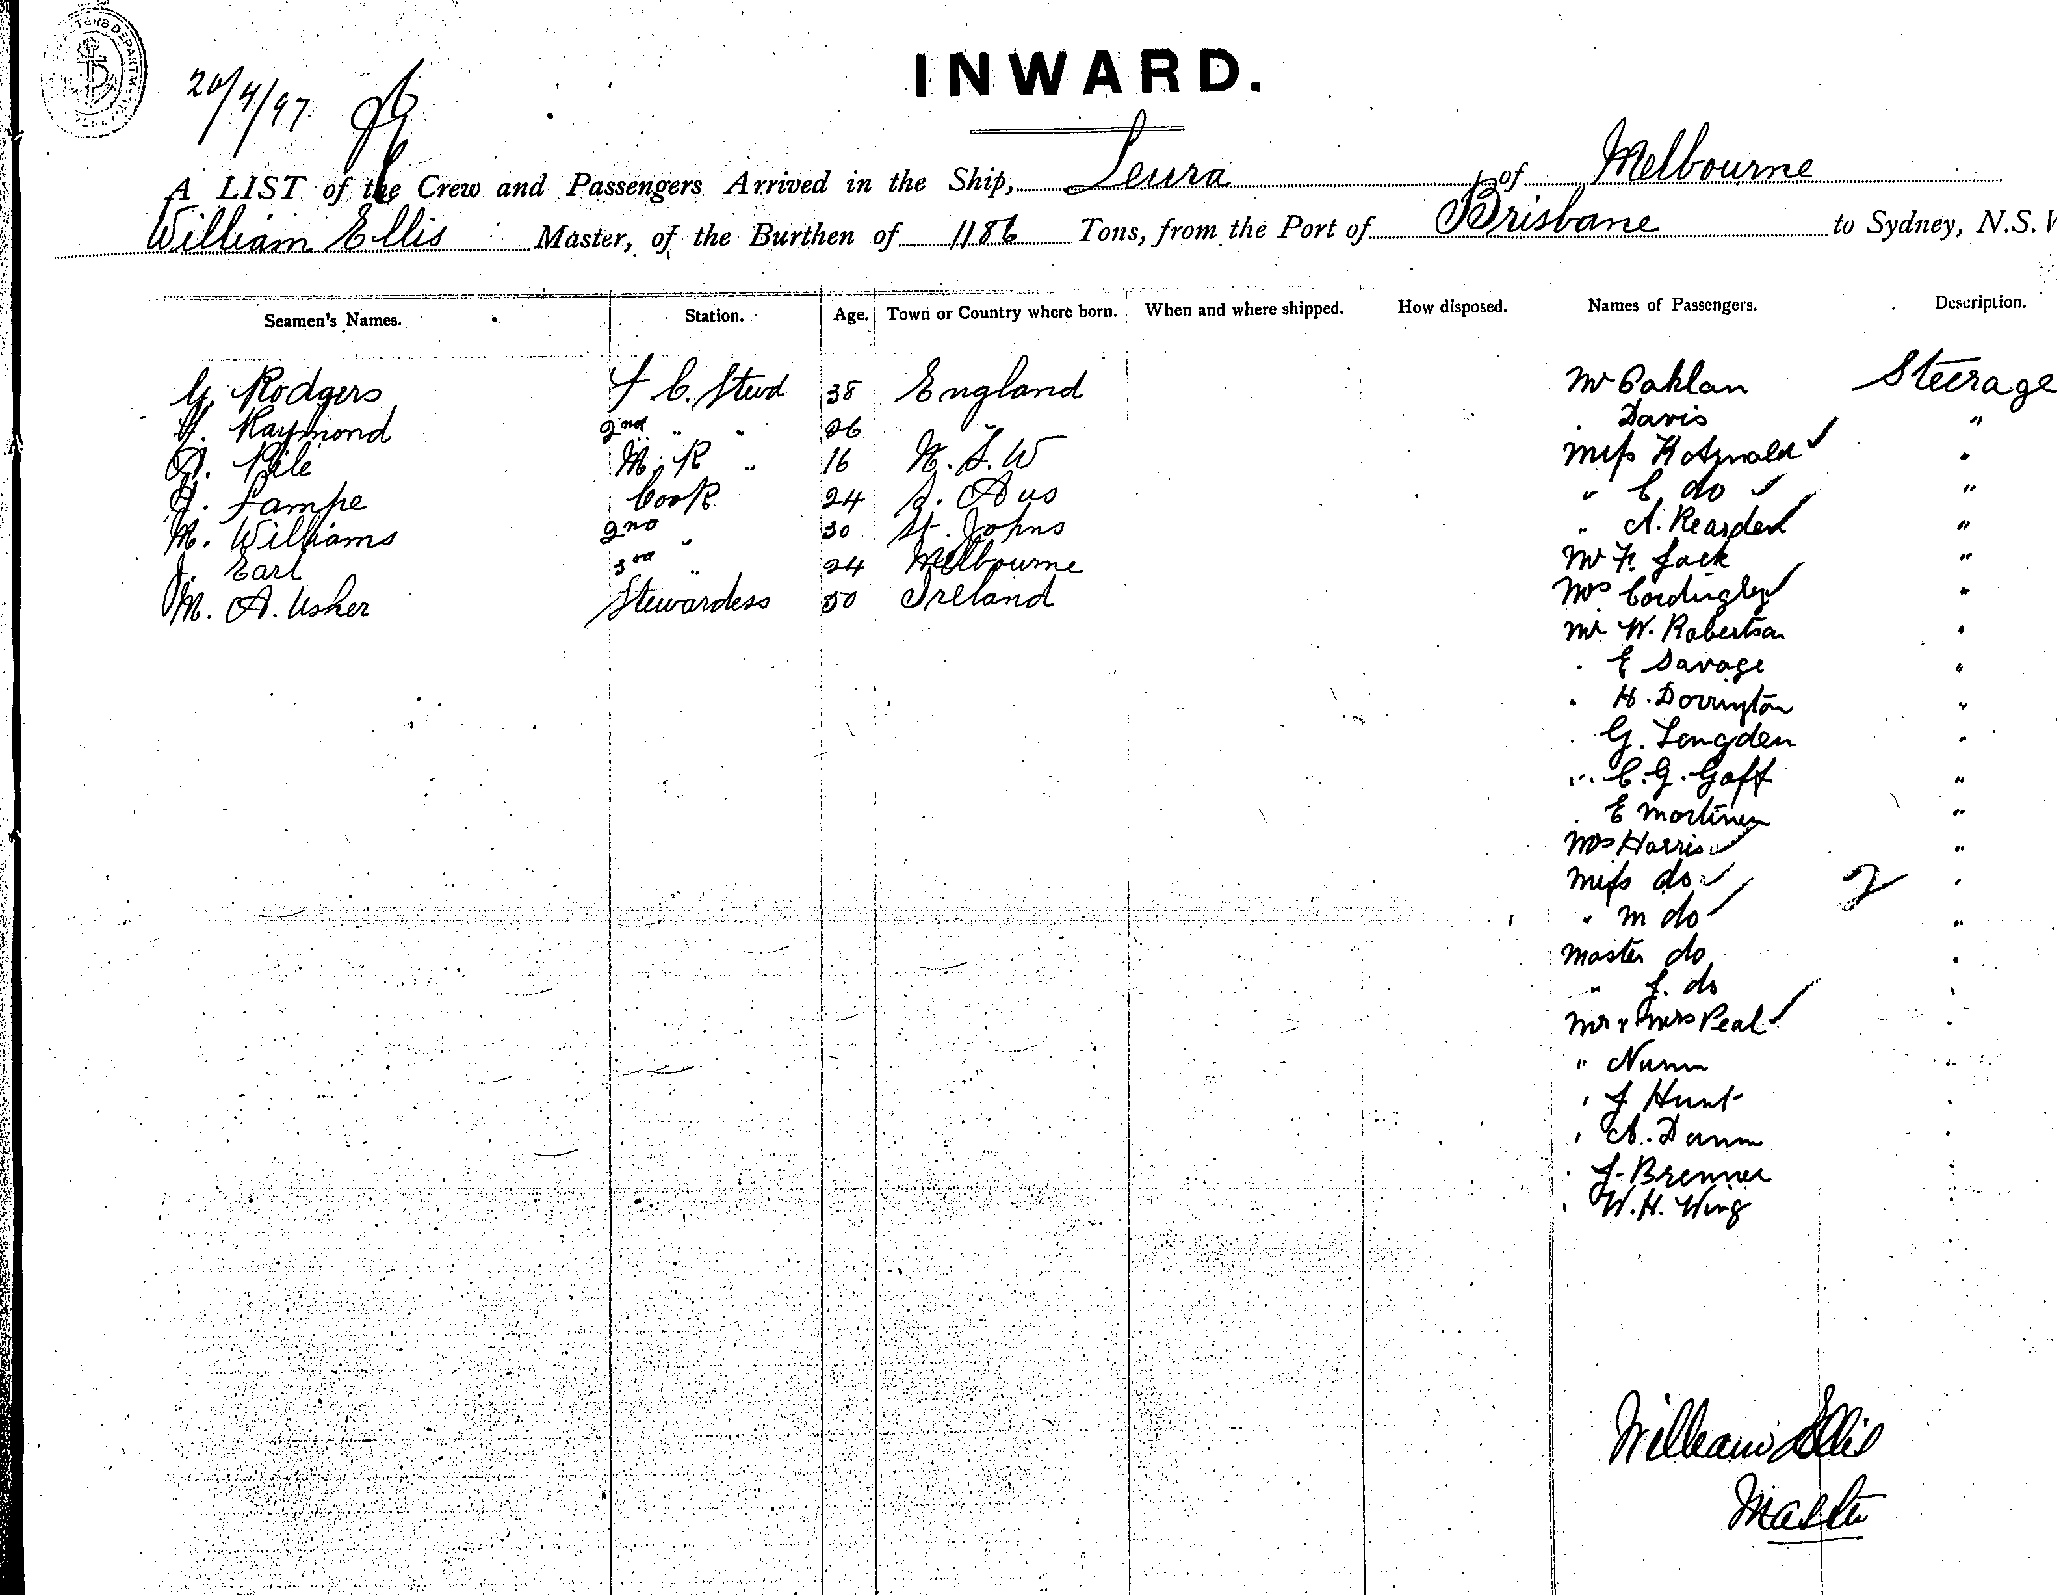 20/4/97
INWARD.
A LIST of the Crew and Passengers Arrived in the Ship, Leura of Melbourne
William Ellis Master, of the Burthen of 1186 Tons, from the Port of Brisbane to Sydney, N.S.
Seamen's Names. Station. Age. Town or Country where born. When and where shipped. How disposed. Names of Passengers. Description.
G. Rodgers F C. Stwd 38 England Mr Oaklan Steerage
Raymond 2nd " " 26 " " Davis "
A. Pile M. R " 16 N. S. W Miss "
J. Lampe Cook 24 S. Aus " C do "
M. Williams 2nd " 30 St. Johns " A. Rearden "
J. Earl 3rd " 24 Melbourne Mr F. Jack "
M. A. Usher Stewardess 50 Ireland Mrs Cordingley "
Mr W. Robertson "
" E Savage "
" H. Dorrington "
" G. Longden "
" C. G. Goff "
" E Mortimer "
Mrs Harris "
Miss do 2 "
" M do "
Master do "
" J. do "
Mr & Mrs Peal "
" Nunn "
" J Hunt "
" A. Dunn "
" J. Brenner
" W. H. Wing
William Ellis
Master